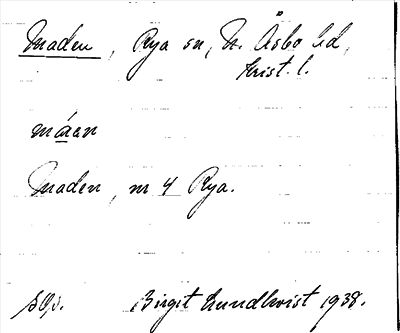 Maden, Rya sn, N. Åsbo hd,
Krist. l.
måan
Maden, nr 4 Rya.
Birgit Lundkvist 1938.